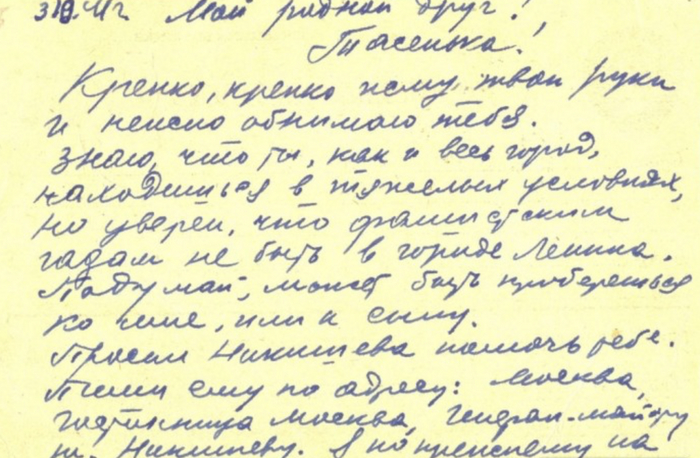 31г. Мой родной друг!
Тасенька!
Крепко, крепко жму твои руки
и нежно обнимаю тебя.
Знаю, что ты, как и весь город,
находишься в тяжелых условиях,
но уверен, что фашистским
гадам не быть в городе Ленина.
Подумай, может быть проберешься
ко мне, или к сыну.
Просил Никишева помочь тебе.
Пиши ему по адресу: Москва,
гостиница Москва, Генерал-майору
т. Никишеву. Я по прежнему на